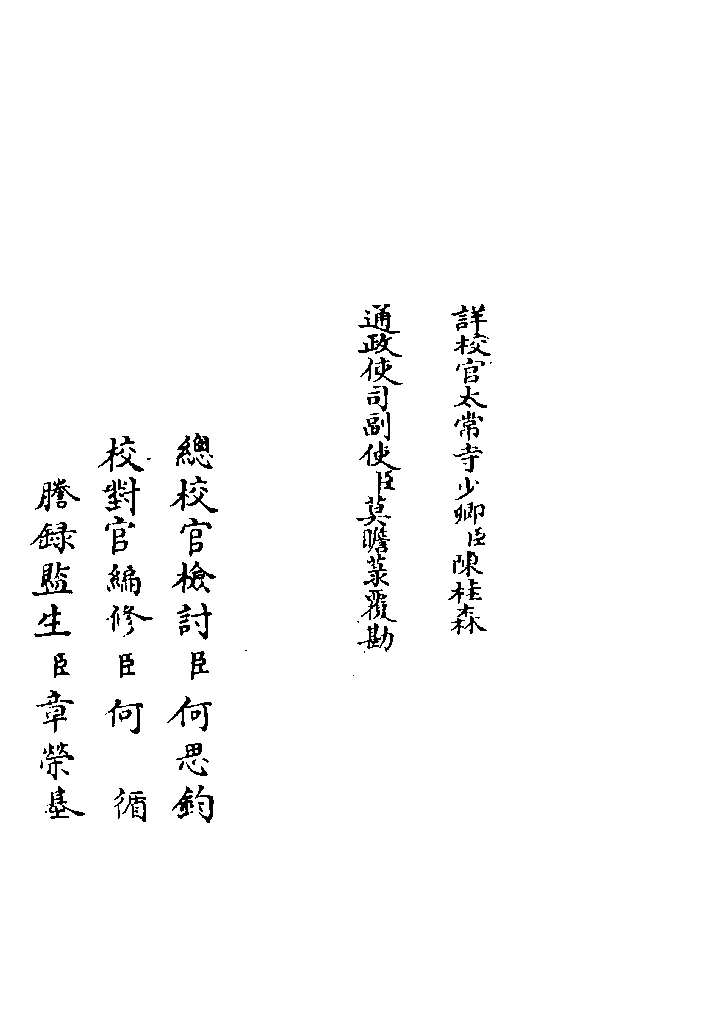 詳校官太常寺少卿臣陳桂森
通政使司副使臣莫瞻菉覆勘
總校官檢討臣何思鈞
校對官編修臣何循
謄録監生臣章榮基